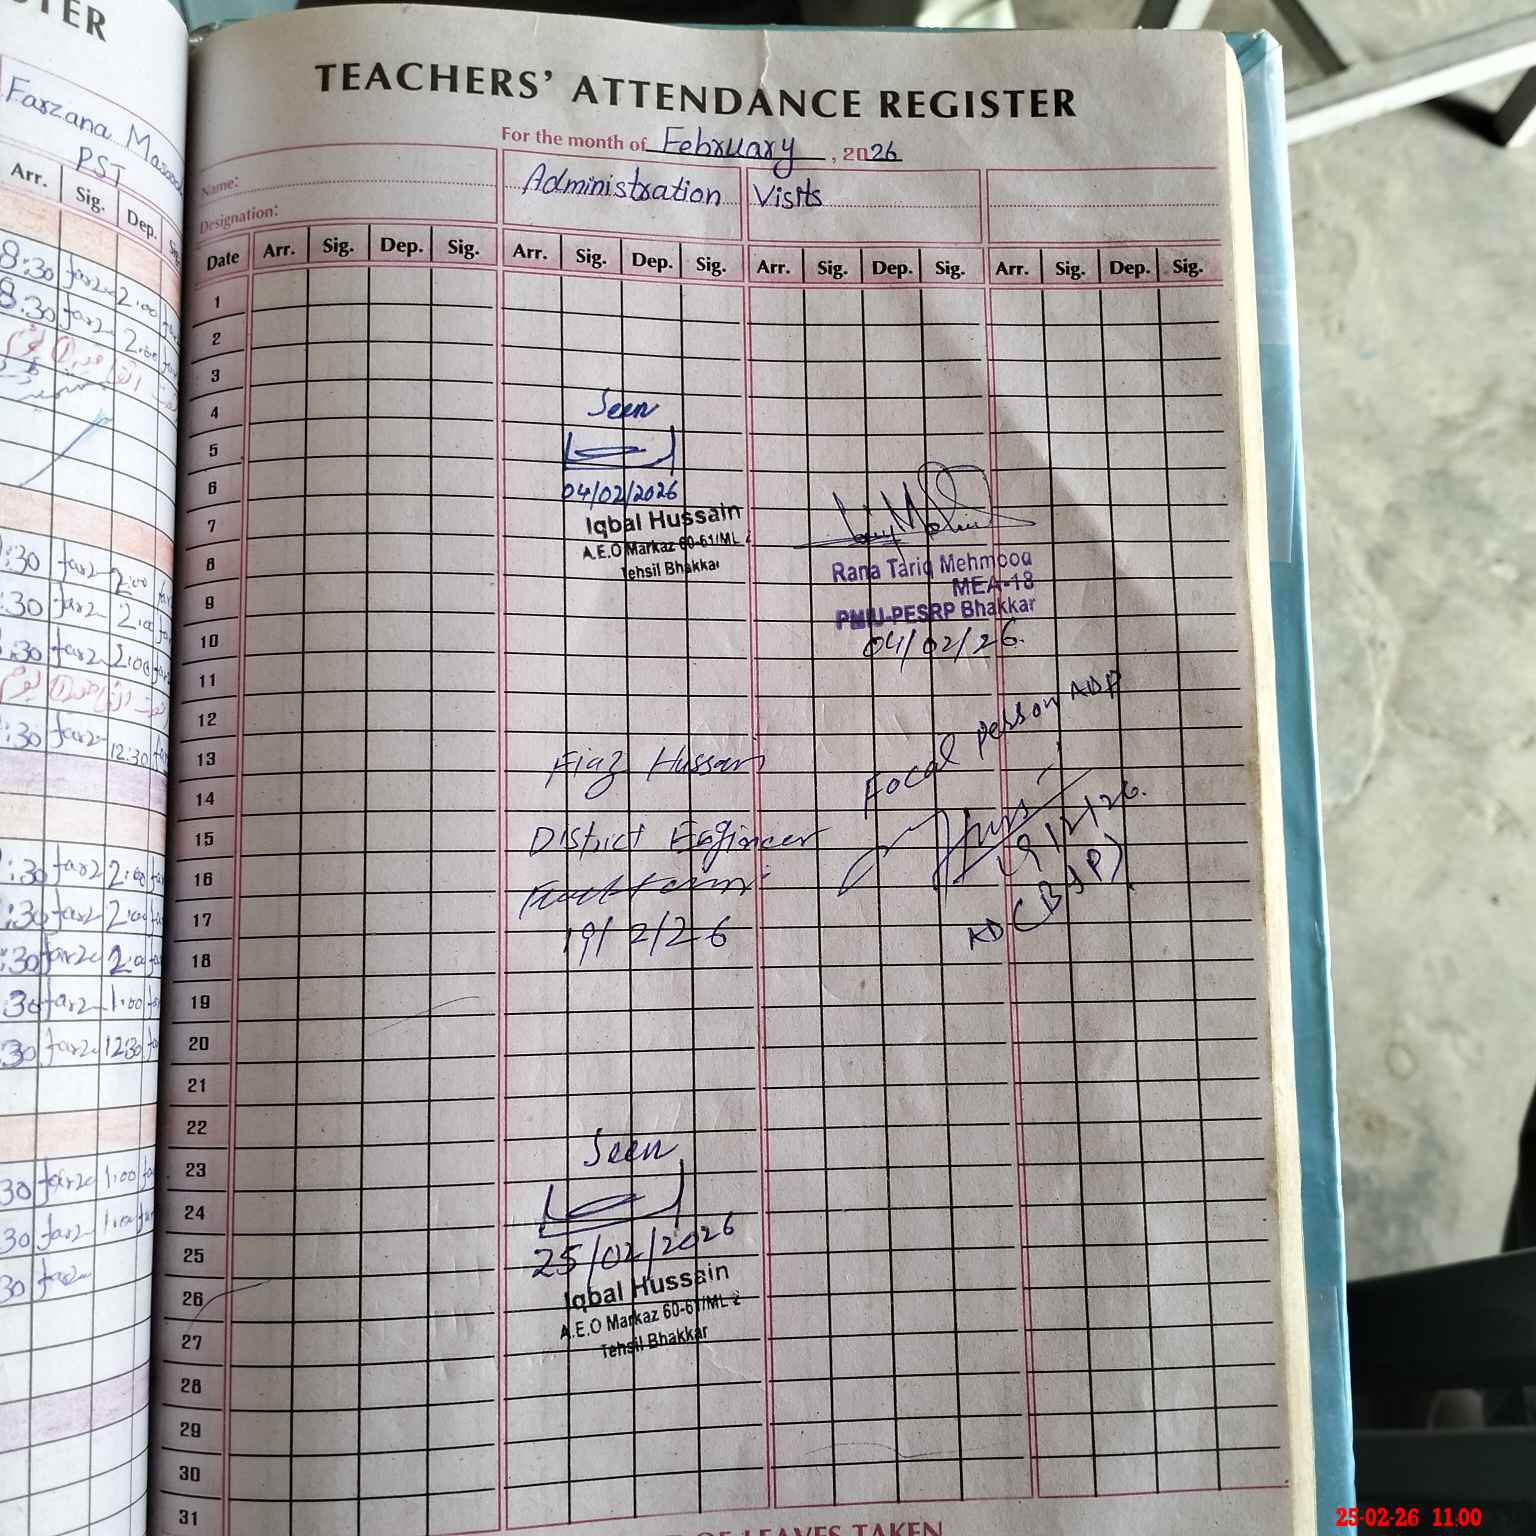 TER
Farzana
PST
Arr. Sig. Dep.
8:30 far2 2:00
8:30 far2 2:00
:30 far2 2:00
:30 far2 2:00
:30 far2 2:00
:30 far2 12:30
:30 far2 2:00
:30 far2 2:00
:30 far2 2:00
:30 far2 1:00
:30 far2 12:30
30 far2 1:00
30 far2 1:00
30 far2
TEACHERS' ATTENDANCE REGISTER
For the month of February, 2026
Name: Administration Visits
Designation:
Date Arr. Sig. Dep. Sig. Arr. Sig. Dep. Sig. Arr. Sig. Dep. Sig. Arr. Sig. Dep. Sig.
1
2
3
4
5
6
7
8
9
10
11
12
13
14
15
16
17
18
19
20
21
22
23
24
25
26
27
28
29
30
31
Seen
04/02/2026
Iqbal Hussain
A.E.O Markaz 60-61/ML
Tehsil Bhakkar
Rana Tariq Mehmood
MEA-18
PMIU-PESRP Bhakkar
04/02/26.
Fiaz Hussain
District Engineer
19/2/26
Focal Person ADP
19/2/26.
Seen
25/02/2026
Iqbal Hussain
A.E.O Markaz 60-61/ML 2
Tehsil Bhakkar
OF LEAVES TAKEN
25-02-26 11:00